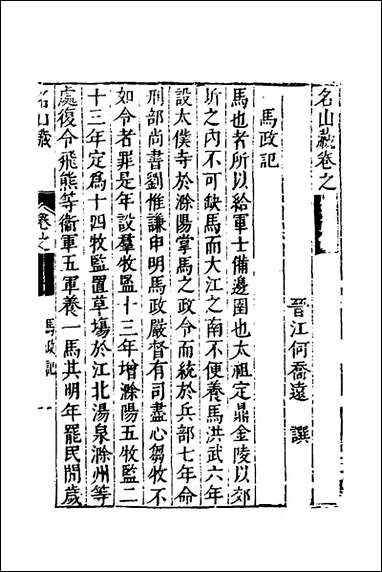 名山藏卷之
晉江何喬遠 譔
馬政記
馬也者所以給軍士備邊圉也太祖定鼎金陵以郊
圻之內不可缺馬而大江之南不便養馬洪武六年
設太僕寺於滁陽掌馬之政令而統於兵部七年命
刑部尚書劉惟謙申明馬政嚴督有司盡心芻牧不
如令者罪是年設羣牧監十三年增滁陽五牧監二
十三年定爲十四牧監置草塲於江北湯泉滁州等
處復令飛熊等衞軍五軍養一馬其明年罷民間歲
名山藏
卷之
馬政記
一